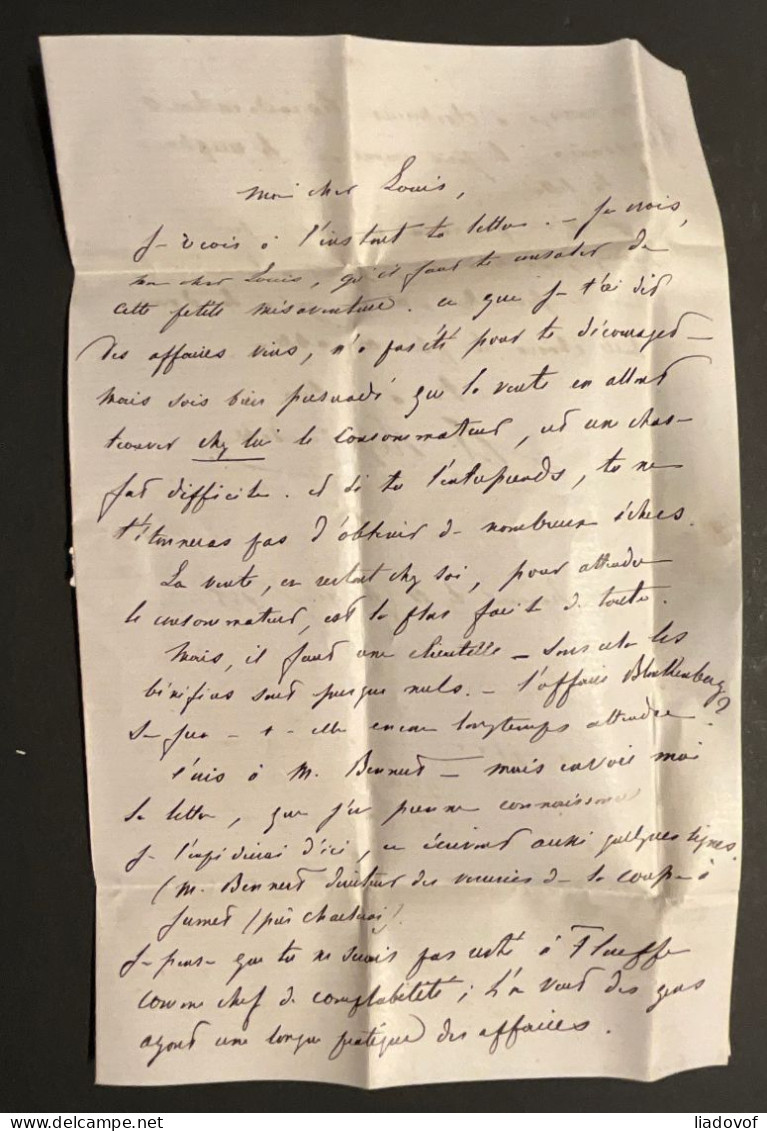 Mon cher Louis,
Je reçois à l'instant ta lettre. — Je crois,
mon cher Louis, qu'il faut te consoler de
cette petite mésaventure. ce que je t'ai dit
des affaires vins, n'a pas été pour te décourager —
mais sois bien persuadé que la vente en allant
trouver chez lui le consommateur, est un
fort difficile. et si tu l'entreprends, tu ne
t'étonneras pas d'obtenir de nombreux échecs.
La vente, en restant chez soi, pour attendre
le consommateur, est la plus facile de toute.
Mais, il faut une clientelle — sans cela les
bénéfices sont presque nuls. — L'affaire Blankenberg
se fera-t-elle encore longtemps attendre ?
écris à M. Bennert — mais envoie moi
la lettre, que j'en prenne connaissance
je l'expédierai d'ici, en écrivant aussi quelques lignes.
(M. Bennert directeur des verreries de la coupe à
Jumet (près Charleroi).
Je pense que tu ne serais pas resté à
comme chef de comptabilité; l'on veut des gens
ayant une longue pratique des affaires.
liadovof